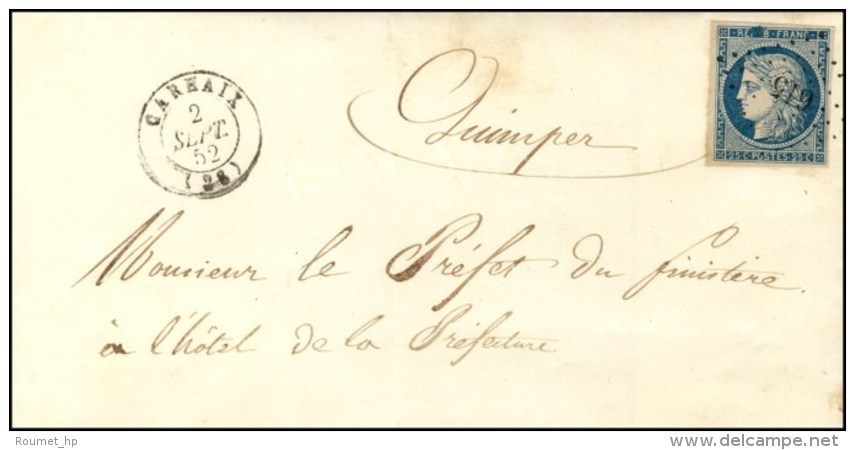 CARHAIX
2
SEPT.
52
(28)
REPUB FRANC
25 C POSTES 25 C
615
Quimper
Monsieur le Préfet du finistère.
à l'hôtel de la Préfecture
Roumet_hp
www.delcampe.net